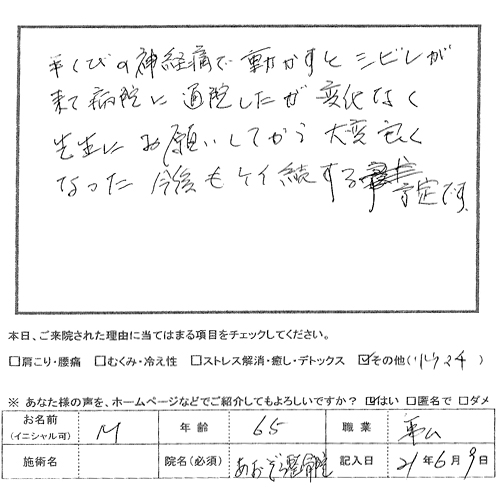 手くびの神経痛で動かすとシビレが
来て病院に通院したが変化なく
先生にお願いしてから大変良く
なった今後もケイ続する予定です。
本日、ご来院された理由に当てはまる項目をチェックしてください。
□肩こり・腰痛 □むくみ・冷え性 □ストレス解消・癒し・デトックス ☑その他(リウマチ)
※ あなた様の声を、ホームページなどでご紹介してもよろしいですか? ☑はい □匿名で □ダメ
お名前(イニシャル可) M 年齢 65 職業
施術名 院名(必須) あおぞら整骨院 記入日 21年6月9日